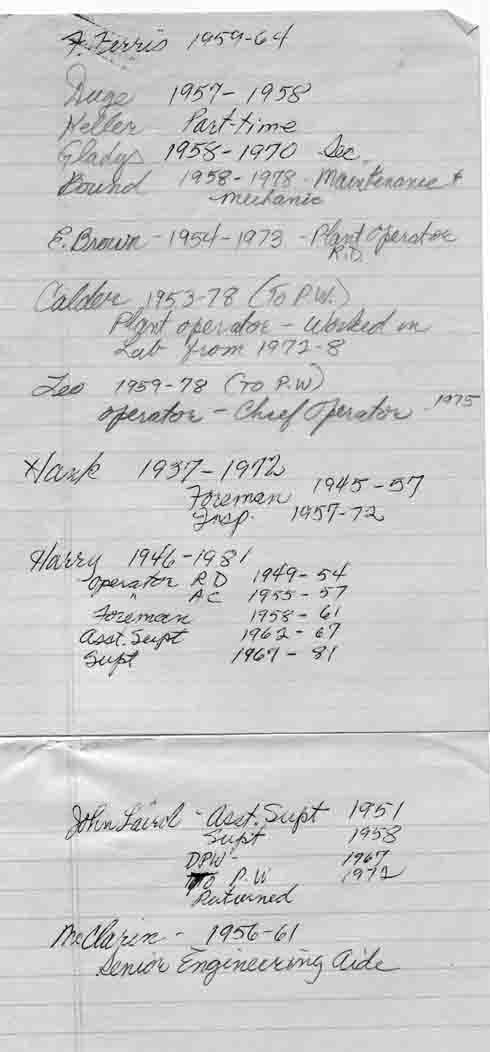 F. Ferris 1959-64
Duge 1957-1958
Heller Part-time
Gladys 1958-1970 Sec.
Bound 1958-1978 - Maintenance &
mechanic
E. Brown - 1954-1973 - Plant Operator
R.D.
Calder 1953-78 (To P.W.)
Plant operator - Worked in
Lab from 1972-8
Leo 1959-78 (To P.W)
operator - Chief Operator - 1975
Hank 1937-1972
Foreman 1945-57
Insp. 1957-72
Harry 1946-1981
operator RD 1949-54
" AC 1955-57
Foreman 1958-61
Asst. Supt 1962-67
Supt 1967-81
John Laird - Asst. Supt 1951
Supt 1958
DPW - 1967
To P.W 1972
Returned
McClarin - 1956-61
Senior Engineering Aide